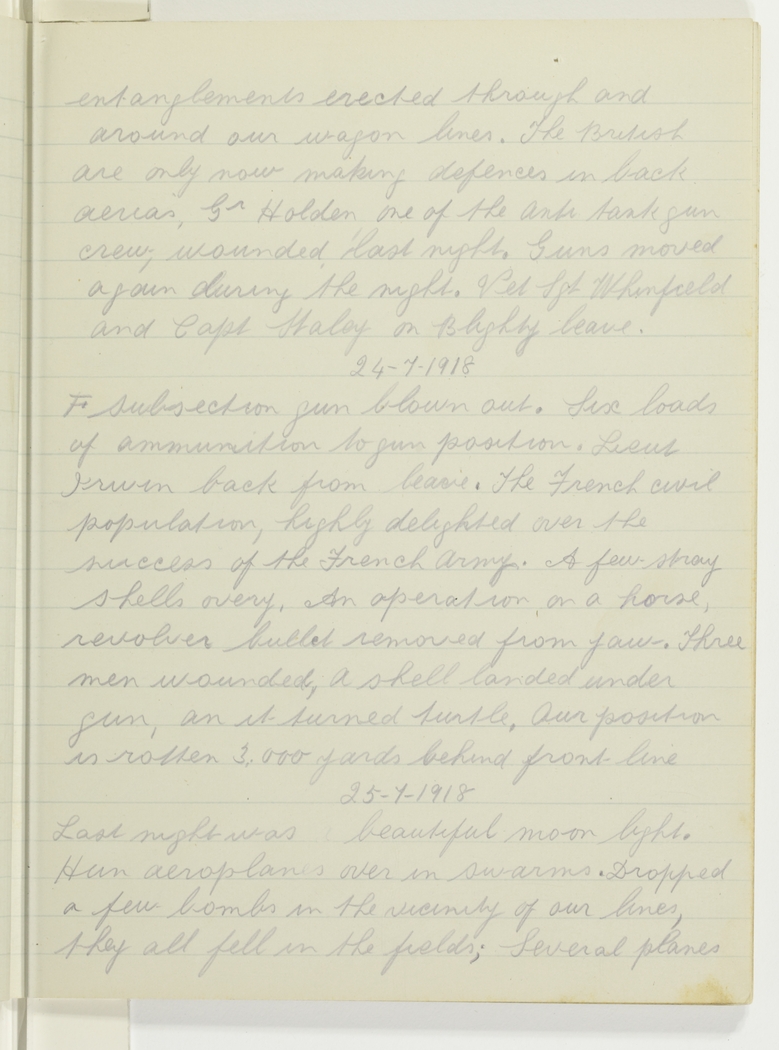 entanglements erected through and
around our wagon lines. The British
are only now making defences in back
aerias, Gr Holden one of the anti tank gun
crew, wounded last night. Guns moved
again during the night. Vet Sgt Whinfield
and Capt Staley on Blighty leave.
24-7-1918
F subsection gun blown out. Six loads
of ammunition to gun position. Lieut
Irwin back from leave. The French civil
population, highly delighted over the
success of the French Army. A few stray
shells overy. An operation on a horse,
revolver bullet removed from jaw. Three
men wounded, a shell landed under
gun, an it turned turtle, Our position
is rotten 3,000 yards behind front line
25-7-1918
Last night was beautiful moon light.
Hun aeroplanes over in swarms. Dropped
a few bombs in the vicinity of our lines,
they all fell in the fields; Several planes